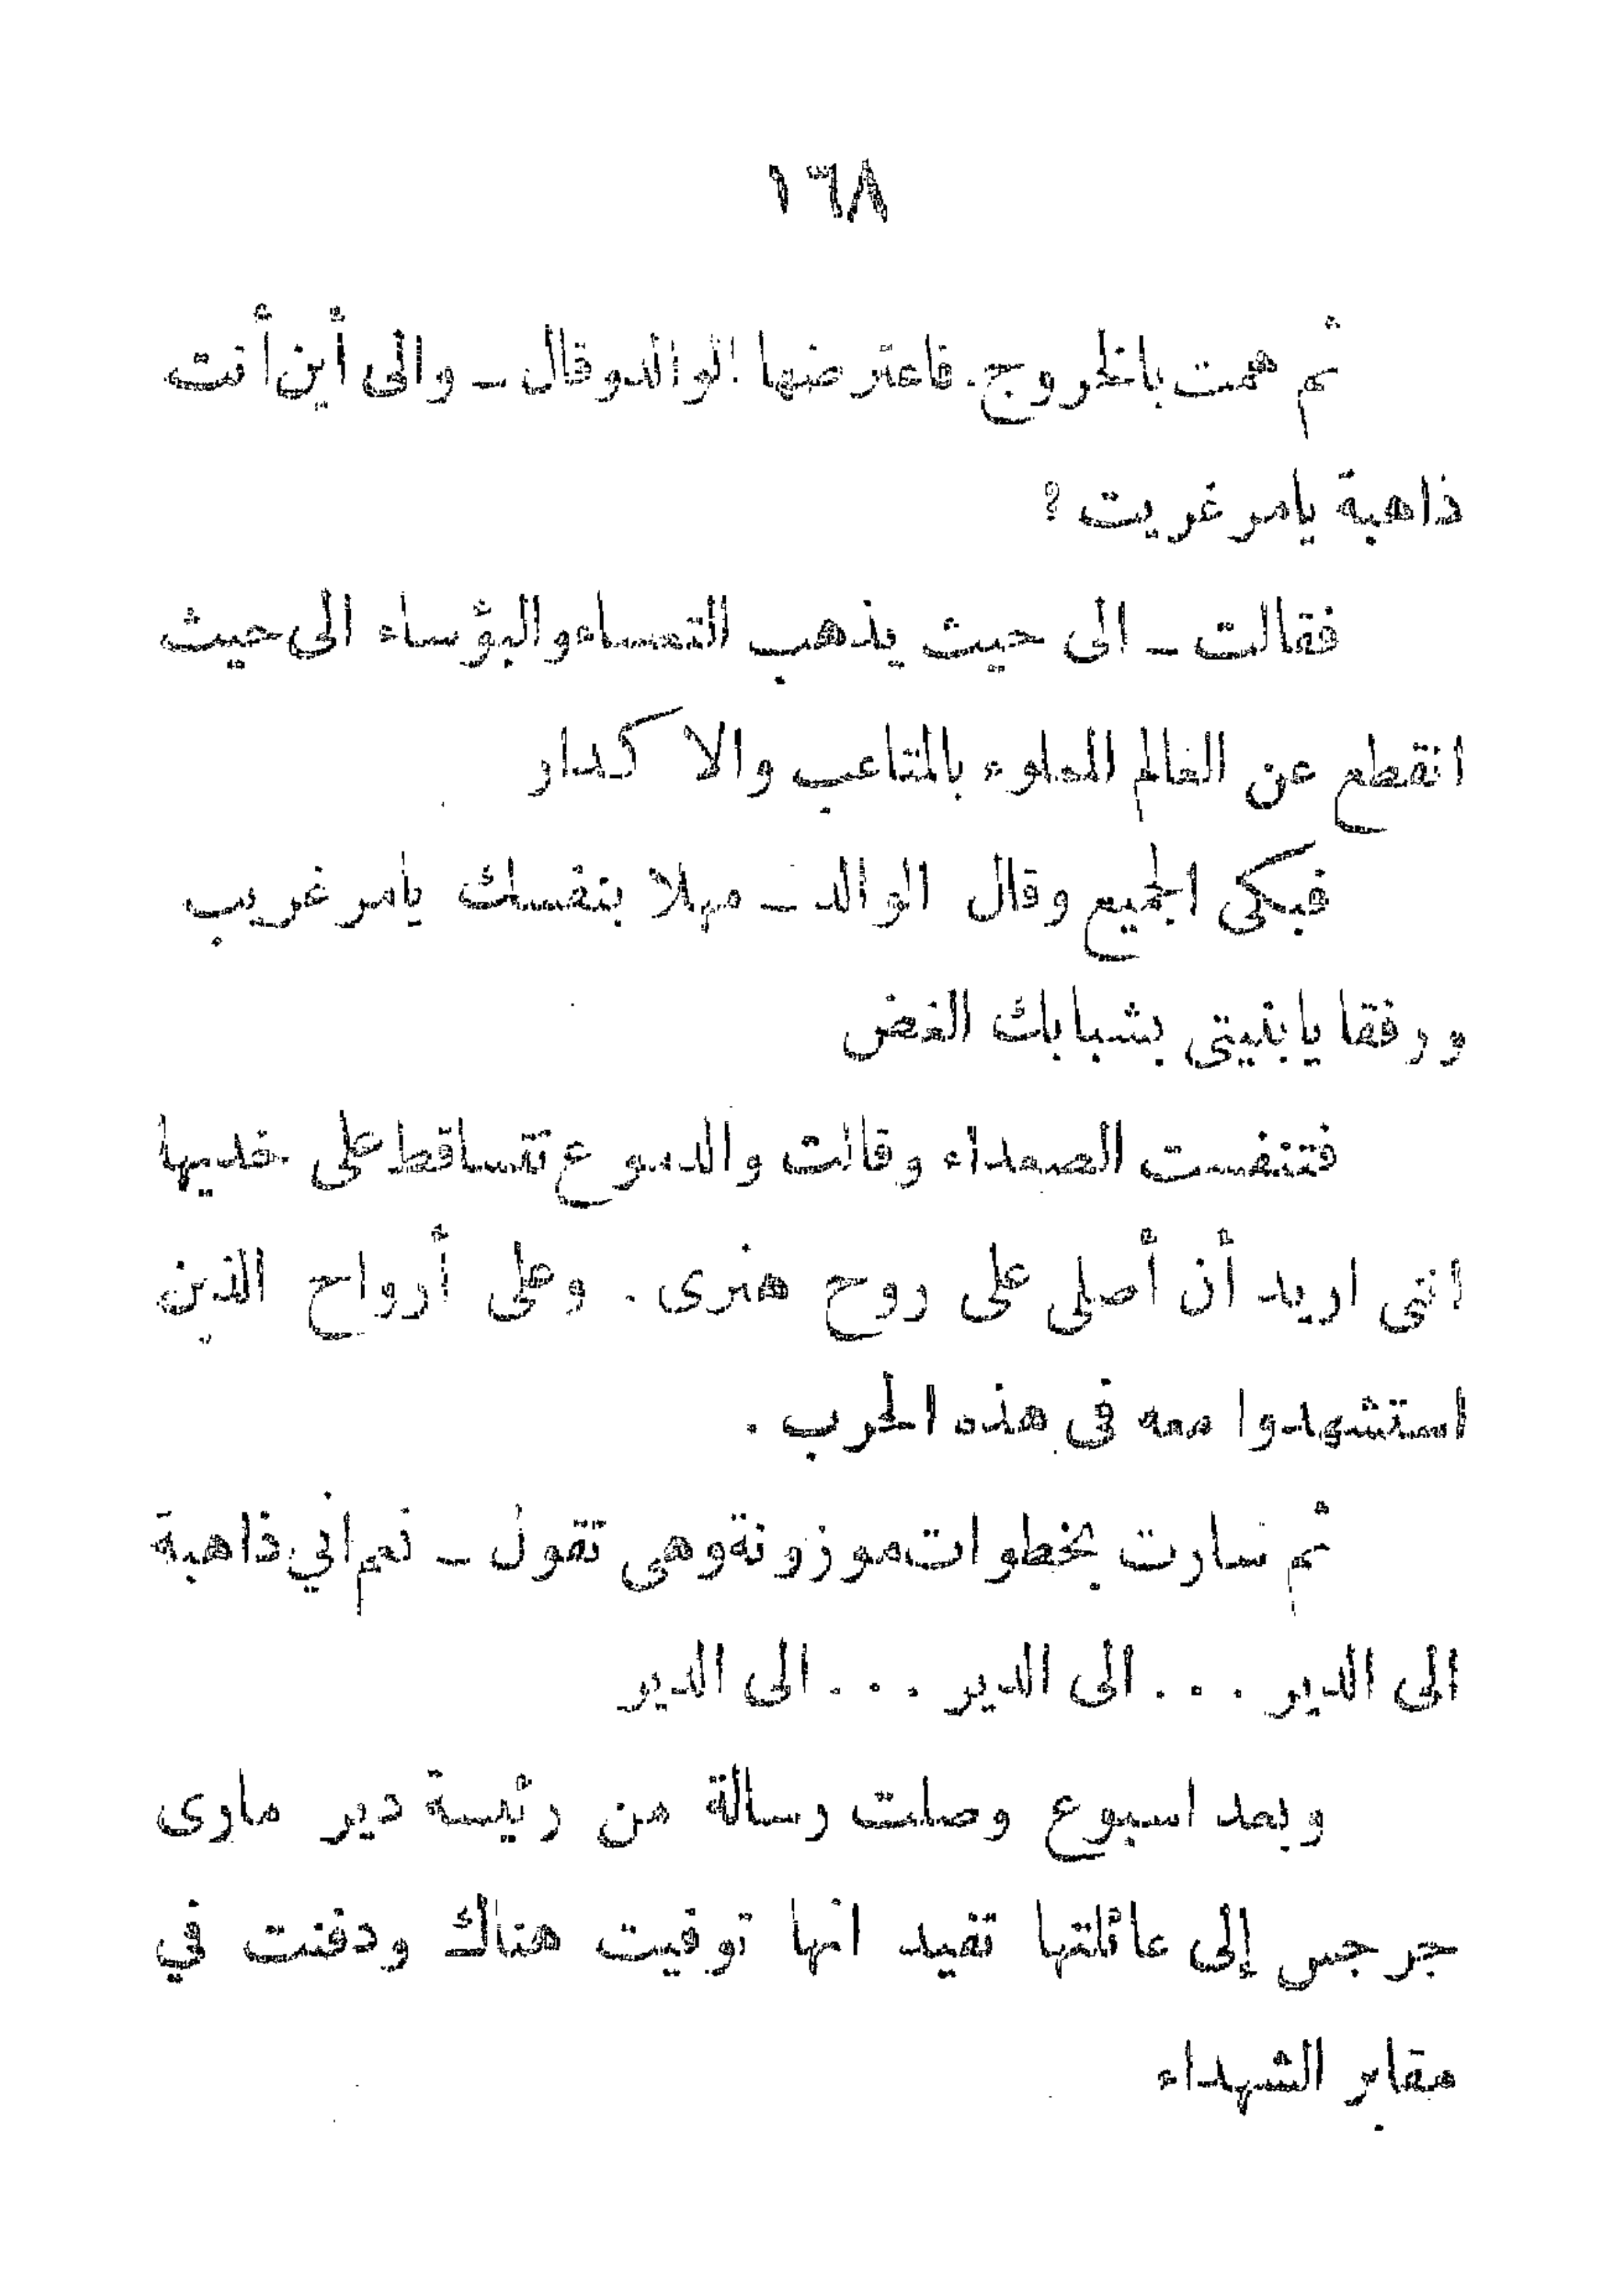 ١٦٨
ثم همت بالخروج. فاعترضها الوالد وقال ــ والى أين أنت
ذاهبة يامرغريت ؟
فقالت ــ الى حيث يذهب التعساء والبؤساء الى حيث
انقطع عن العالم المملوء بالمتاعب والاكدار
فبكى الجميع وقال الوالد ــ مهلا بنفسك يامرغريب
ورفقا يابنيتى بشبابك الغض
فتنفست الصعداء وقالت والدموع تتساقط على خديها
انى اريد أن أصلى على روح هنرى . وعلى أرواح الذين
استشهدوا معه فى هذه الحرب .
ثم سارت بخطوات موزونة وهى تقول ــ نعم اني ذاهبة
الى الدير . . . الى الدير . . . الى الدير
وبعد اسبوع وصلت رسالة من رئيسة دير مارى
جرجس إلى عائلتها تفيد انها توفيت هناك ودفنت في
مقابر الشهداء